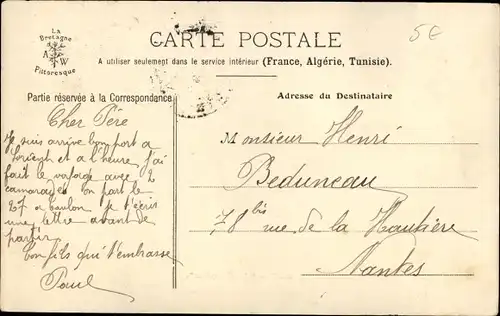 La
Bretagne
A W
Pittoresque
CARTE POSTALE
5€
A utiliser seulement dans le service intérieur (France, Algérie, Tunisie).
Partie réservée à la Correspondance
Adresse du Destinataire
Cher Père
Je suis arrivé bon port a
Lorient et a l'heure, j'ai
fait le voyage avec 2
camarades on part le
27 a toulon je t'écris
une lettre avant de
partir
ton fils qui t'embrasse
Paul
Monsieur Henri
Beduneau
78 bis rue de la Hautière
Nantes